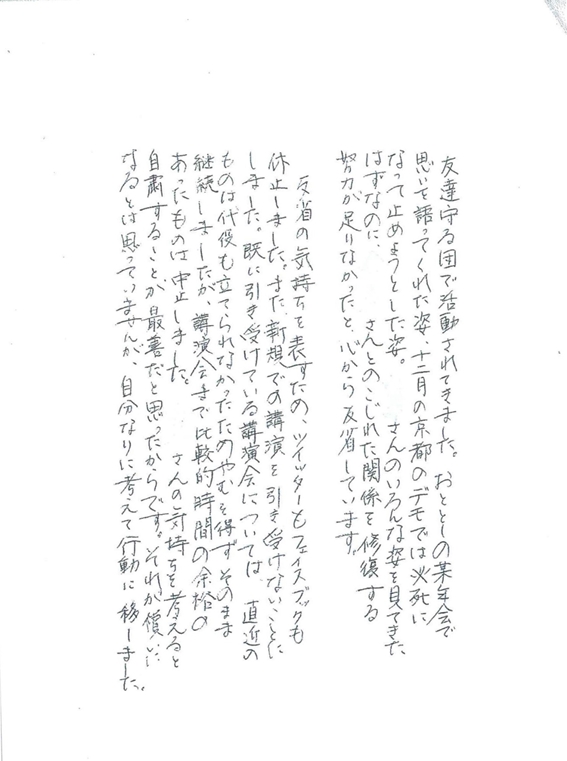 友達守る団で活動されてきました。おととしの某年会で
思いを語ってくれた姿、十二月の京都のデモでは必死に
なって止めようとした姿。　　さんのいろんな姿を見てきた
はずなのに、　　さんとのこじれた関係を修復する
努力が足りなかったと、心から反省しています。
反省の気持ちを表すため、ツイッターもフェイスブックも
休止しました。また、新規での講演を引き受けないことに
しました。既に引き受けている講演会については、直近の
ものは代役も立てられなかったためやむを得ずそのまま
継続しましたが、講演会まで比較的時間の余裕の
あったものは中止しました。　　さんの気持ちを考えると
自粛することが最善だと思ったからです。それが償いに
なるとは思っていませんが、自分なりに考えて行動に移しました。